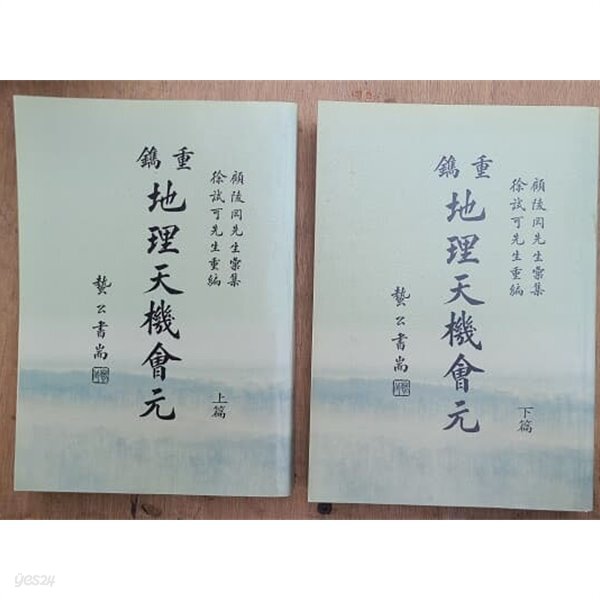 重鐫
顧陵岡先生彙集
徐試可先生重編
地理天機會元
上篇
重鐫
顧陵岡先生彙集
徐試可先生重編
地理天機會元
下篇
yes24